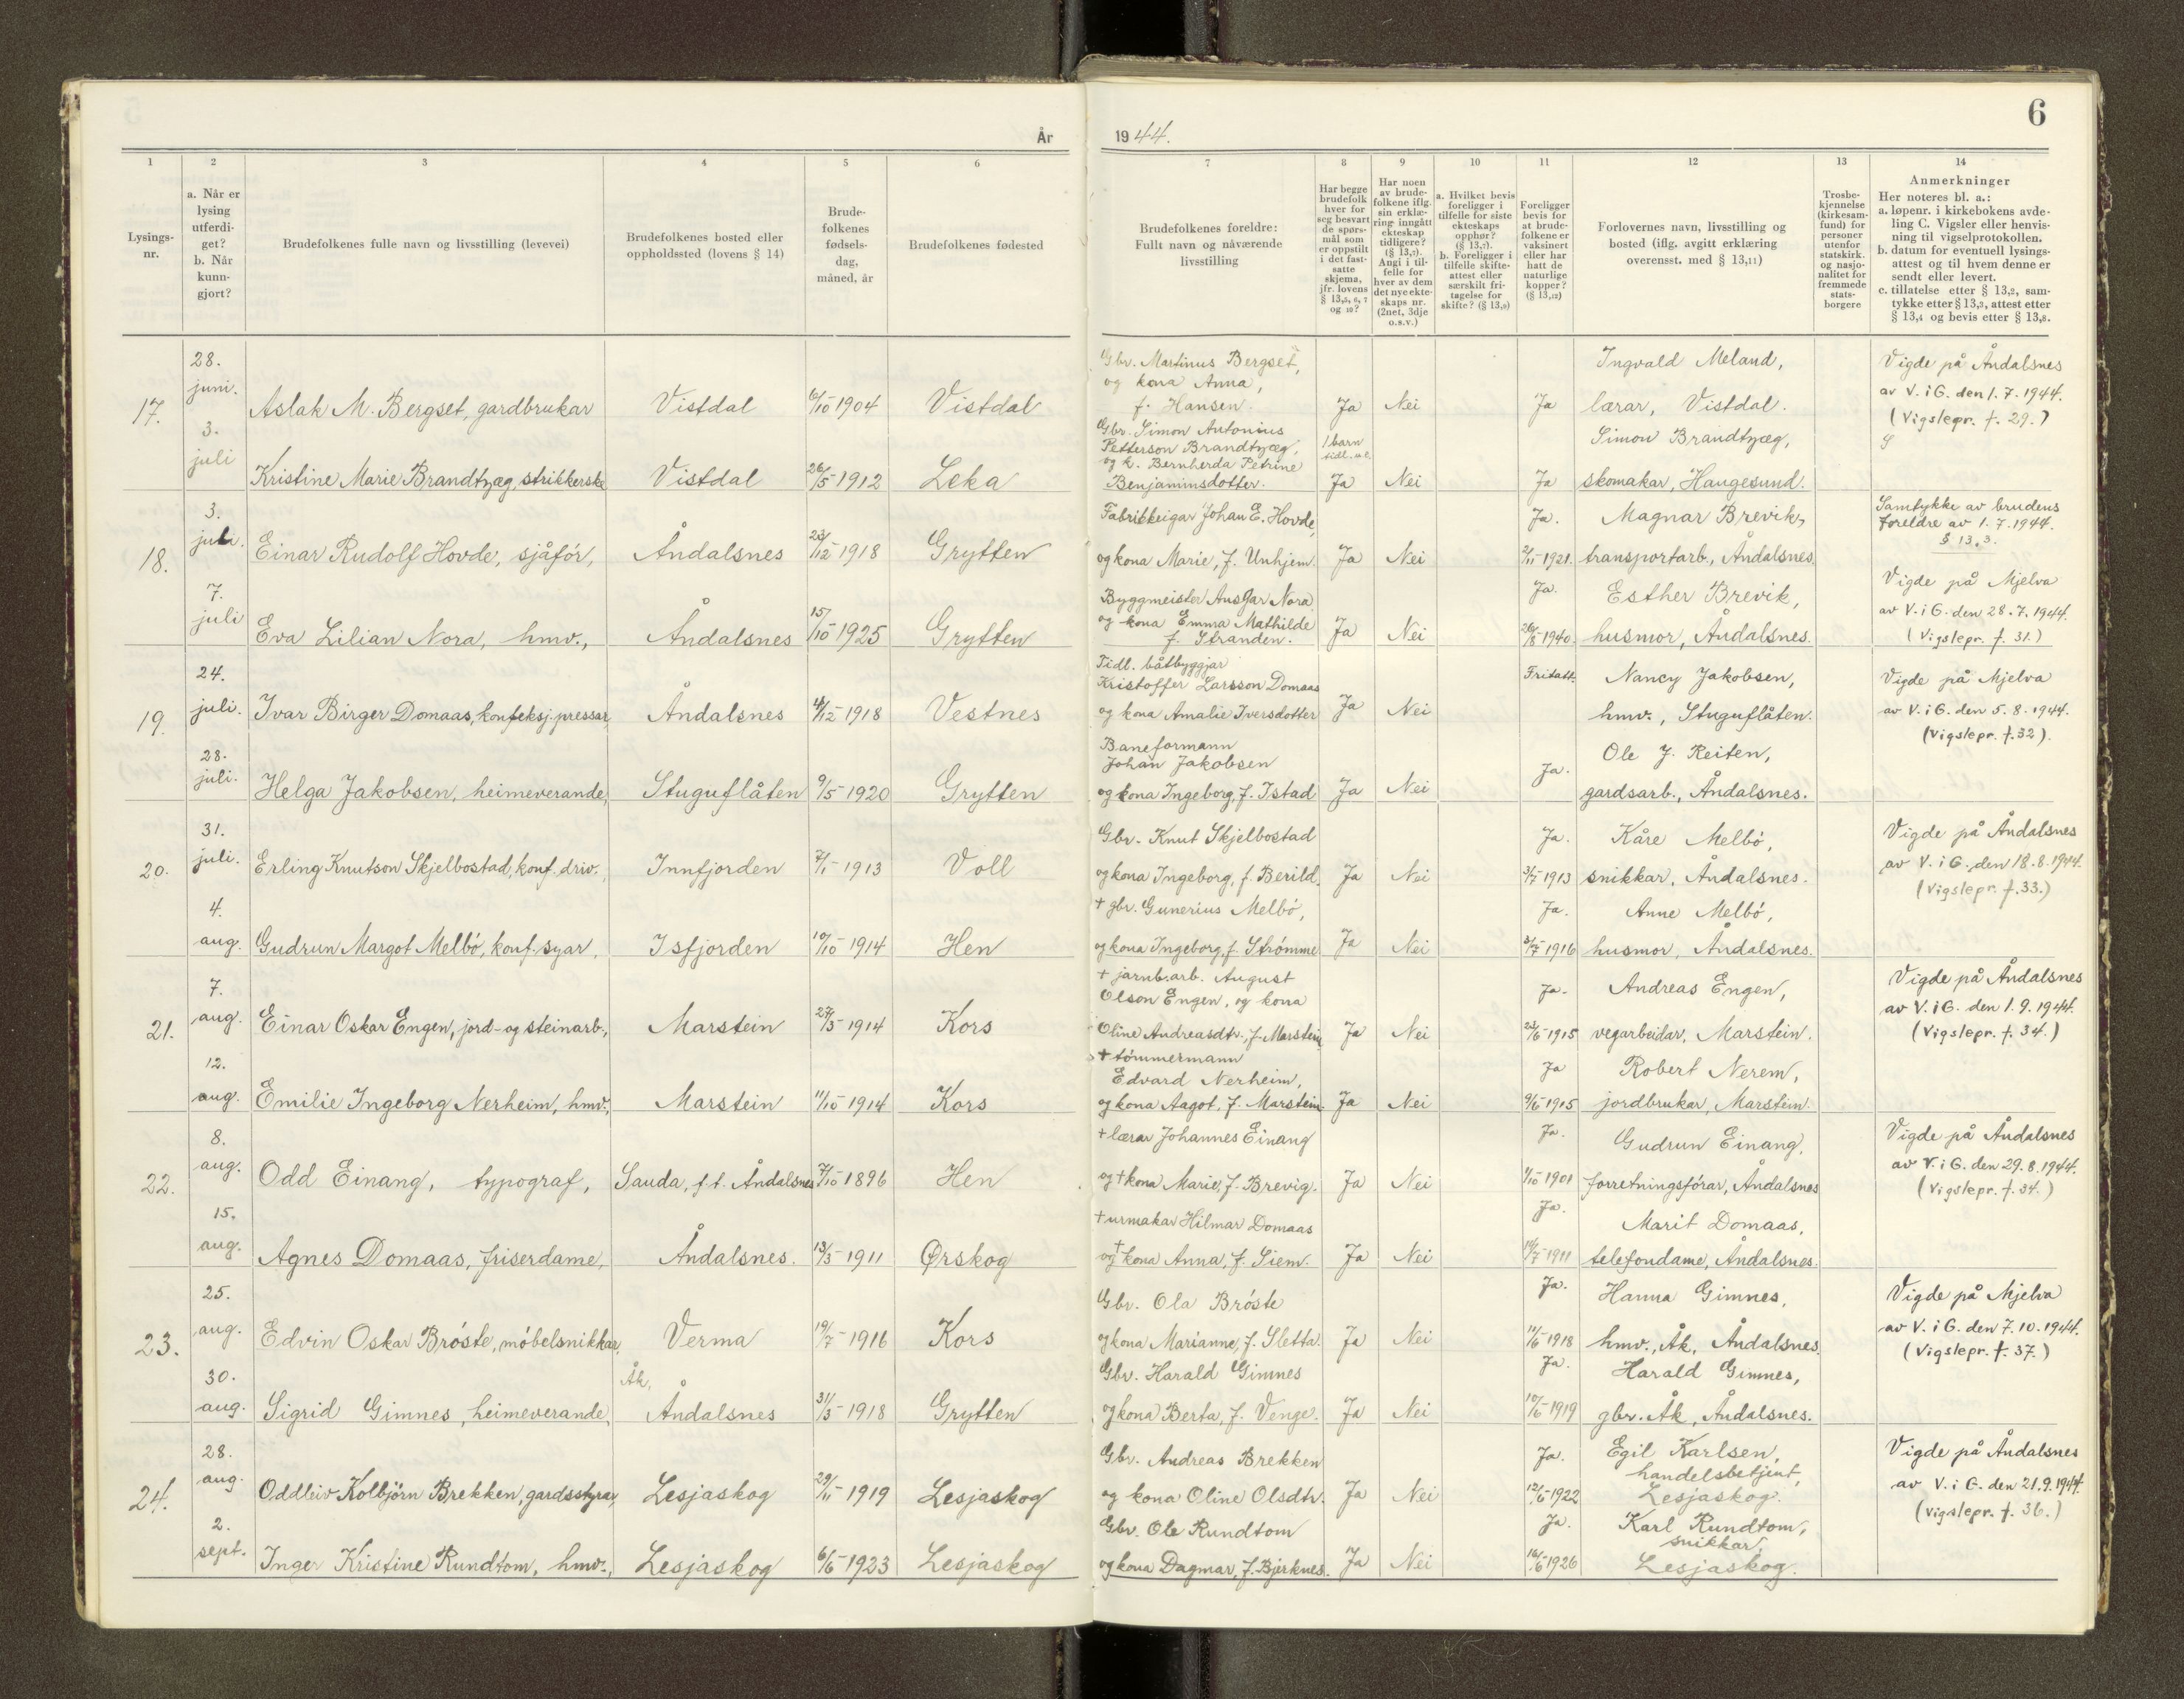 6
År 1944.
1 2 3 4 5 6 7 8 9 10 11 12 13 14
Lysings-
nr.
a. Når er
lysing
utferdi-
get?
b. Når
kunn-
gjort?
Brudefolkenes fulle navn og livsstilling (levevei)
Brudefolkenes bosted eller
oppholdssted (lovens § 14)
Brude-
folkenes
fødsels-
dag,
måned, år
Brudefolkenes fødested
Brudefolkenes foreldre:
Fullt navn og nåværende
livsstilling
Har begge
brudefolk
hver for
seg besvart
de spørs-
mål som
er oppstilt
i det fast-
satte
skjema,
jfr. lovens
§ 13,5, 6, 7
og 10?
Har noen
av brude-
folkene iflg.
sin erklæ-
ring inngått
ekteskap
tidligere?
(§ 13,7).
Angi i til-
felle for
hver av dem
det nye ekte-
skaps nr.
(2net, 3dje
o.s.v.)
a. Hvilket bevis
foreligger i
tilfelle for siste
ekteskaps
opphør?
(§ 13,7).
b. Foreligger i
tilfelle skifte-
attest eller
særskilt fri-
tagelse for
skifte? (§ 13,9)
Foreligger
bevis for
at brude-
folkene er
vaksinert
eller har
hatt de
naturlige
kopper?
(§ 13,12)
Forlovernes navn, livsstilling og
bosted (iflg. avgitt erklæring
overensst. med § 13,11)
Trosbe-
kjennelse
(kirkesam-
fund) for
personer
utenfor
statskirk.
og nasjo-
nalitet for
fremmede
stats-
borgere
Anmerkninger
Her noteres bl. a.:
a. løpenr. i kirkebokens avde-
ling C. Vigsler eller henvis-
ning til vigselprotokollen.
b. datum for eventuell lysings-
attest og til hvem denne er
sendt eller levert.
c. tillatelse etter § 13,2, sam-
tykke etter § 13,3, attest etter
§ 13,4 og bevis etter § 13,8.
17.
28.
juni.
Aslak M. Bergset, gardbrukar
Vistdal
6/10 1904
Vistdal
Gbr. Martinus Bergset,
og kona Anna,
f. Hansen.
Ja Nei Ja
Ingvald Meland,
lærar, Vistdal.
Vigde på Åndalsnes
av V. i G. den 1.7.1944.
(Vigslepr. f. 29.)
3.
juli
Kristine Marie Brandtzæg, strikkerske
Vistdal
26/5 1912
Leka
Gbr. Simon Antonius
Petterson Brandtzæg,
og k. Bernherda Petrine
Benjaminsdotter.
1 barn
tidl. u.e.
Ja Nei Ja
Simon Brandtzæg,
skomakar, Haugesund.
18.
3.
juli.
Einar Rudolf Hovde, sjåfór,
Åndalsnes
23/12 1918
Grytten
Fabrikkeigar Johan E. Hovde,
og kona Marie, f. Unhjem.
Ja Nei
Ja.
2/11 1921.
Magnar Brevik,
transportarb., Åndalsnes.
Samtykke av brudens
foreldre av 1.7.1944.
§ 13.3.
7.
juli
Eva Lilian Nora, hmv.,
Åndalsnes
15/10 1925
Grytten
Byggmeister Ansgar Nora
og kona Emma Mathilde
f. Stranden.
Ja Nei
Ja.
26/8 1940.
Esther Brevik,
husmor, Åndalsnes.
Vigde på Mjelva
av V. i G. den 28.7.1944.
(Vigslepr. f. 31.)
19.
24.
juli.
Ivar Birger Domaas, konfeksj.pressar,
Åndalsnes
4/12 1918
Vestnes
Tidl. båtbyggjar
Kristoffer Larsson Domaas
og kona Amalie Iversdotter
Ja Nei
Fritatt.
Nancy Jakobsen,
hmv., Stuguflåten.
Vigde på Mjelva
av V. i G. den 5.8.1944.
(Vigslepr. f. 32).
28.
juli.
Helga Jakobsen, heimeverande,
Stuguflåten
9/5 1920
Grytten
Baneformann
Johan Jakobsen
og kona Ingeborg, f. Istad
Ja Nei
Ja.
Ole J. Reiten,
gardsarb., Åndalsnes.
20.
31.
juli.
Erling Knutson Skjelbostad, konf. driv.,
Innfjorden
7/1 1913
Voll
Gbr. Knut Skjelbostad
og kona Ingeborg, f. Berild.
Ja Nei
Ja.
3/7 1913
Kåre Melbó,
snikkar, Åndalsnes.
Vigde på Åndalsnes
av V. i G. den 18.8.1944.
(Vigslepr. f. 33.)
4.
aug.
Gudrun Margot Melbó, konf. syar,
Isfjorden
10/10 1914
Hen
+ gbr. Gunerius Melbó,
og kona Ingeborg, f. Strómme
Ja Nei
Ja.
3/7 1916
Anne Melbó,
husmor, Åndalsnes.
21.
7.
aug.
Einar Oskar Engen, jord- og steinarb.,
Marstein
29/3 1914
Kors
+ jarnb.arb. August
Olson Engen, og kona
Oline Andreasdtr., f. Marstein
Ja Nei
Ja.
22/6 1915
Andreas Engen,
vegarbeidar, Marstein.
Vigde på Åndalsnes
av V. i G. den 1.9.1944.
(Vigslepr. f. 34.)
12.
aug.
Emilie Ingeborg Nerheim, hmv.,
Marstein
11/10 1914
Kors
+ tómmermann
Edvard Nerheim,
og kona Aagot, f. Marstein.
Ja Nei
Ja
9/6 1915
Robert Nerem,
jordbrukar, Marstein.
22.
8.
aug.
Odd Einang, typograf,
Sauda, f.t. Åndalsnes
7/10 1896
Hen
+ lærar Johannes Einang
og + kona Marie, f. Brevig.
Ja Nei
Ja.
1/10 1901
Gudrun Einang,
forretningsfórar, Åndalsnes
Vigde på Åndalsnes
av V. i G. den 29.8.1944.
(Vigslepr. f. 34.)
15.
aug.
Agnes Domaas, friserdame,
Åndalsnes.
13/3 1911
Ørskog
+ urmakar Hilmar Domaas
og + kona Anna, f. Siem.
Ja Nei
Ja.
14/7 1911
Marit Domaas,
telefondame, Åndalsnes.
23.
25.
aug.
Edvin Oskar Bróste, móbelsnikkar,
Verma
19/7 1916
Kors
Gbr. Ola Bróste
og kona Marianne, f. Sletta.
Ja Nei
Ja.
11/6 1918
Hanna Gimnes,
hmv., Åk, Åndalsnes.
Vigde på Mjelva
av V. i G. den 7.10.1944.
(Vigslepr. f. 37.)
30.
aug.
Sigrid Gimnes, heimeverande,
Åk,
Åndalsnes
31/3 1918
Grytten
Gbr. Harald Gimnes
og kona Berta, f. Venge.
Ja Nei
Ja.
10/6 1919
Harald Gimnes,
gbr. Åk, Åndalsnes.
24.
28.
aug.
Oddleiv Kolbjörn Brekken, gardsstyrar,
Lesjaskog
29/11 1919
Lesjaskog
Gbr. Andreas Brekken
og kona Oline Olsdtr.
Ja Nei
Ja.
12/6 1922
Egil Karlsen,
handelsbetjent,
Lesjaskog.
Vigde på Åndalsnes
av V. i G. den 21.9.1944.
(Vigslepr. f. 36.)
2.
sept.
Inger Kristine Rundtom, hmv.,
Lesjaskog
6/6 1923
Lesjaskog
Gbr. Ole Rundtom
og kona Dagmar, f. Bjerknes.
Ja Nei
Ja.
16/6 1926
Karl Rundtom,
snikkar,
Lesjaskog.